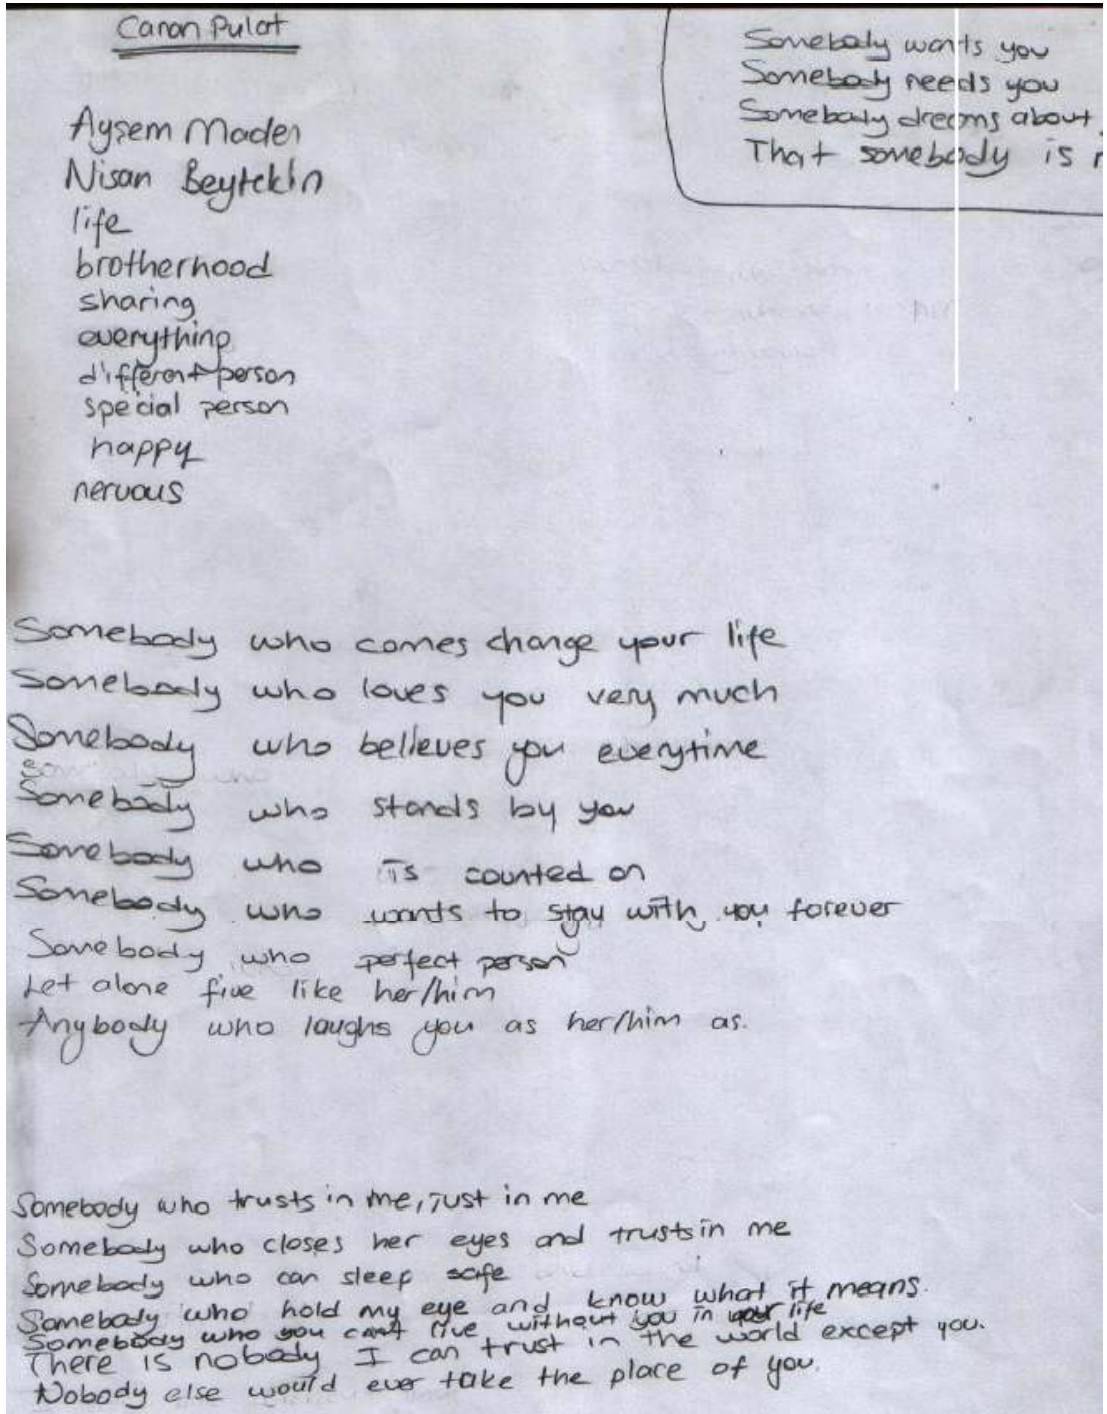 Canan Pulat
Somebody wants you
Somebody needs you
Somebody dreams about
That somebody is
Aysem Maden
Nisan Beytekin
life
brotherhood
sharing
everything
different person
special person
happy
nervous
Somebody who comes change your life
Somebody who loves you very much
Somebody who believes you everytime
Somebody who stands by you
Somebody who is counted on
Somebody who wants to stay with you forever
Somebody who perfect person
Let alone five like her/him
Anybody who laughs you as her/him as.
Somebody who trusts in me, just in me
Somebody who closes her eyes and trusts in me
Somebody who can sleep safe
Somebody who hold my eye and know what it means.
Somebody who you can't live without you in your life
There is nobody I can trust in the world except you.
Nobody else would ever take the place of you.